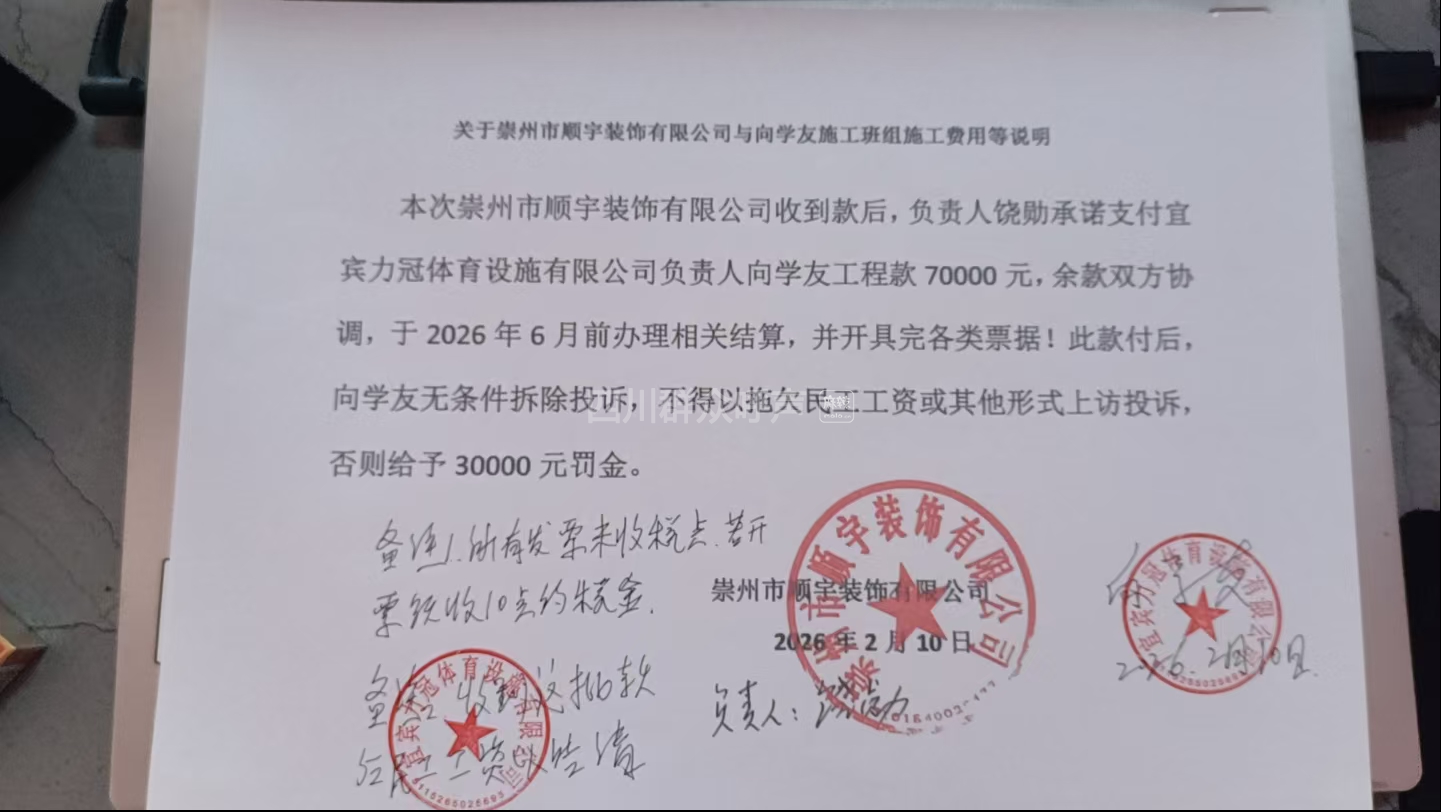 关于崇州市顺宇装饰有限公司与向学友施工班组施工费用等说明
本次崇州市顺宇装饰有限公司收到款后，负责人饶勋承诺支付宜
宾力冠体育设施有限公司负责人向学友工程款 70000 元，余款双方协
调，于 2026 年 6 月前办理相关结算，并开具完各类票据！此款付后，
向学友无条件拆除投诉，不得以拖欠民工工资或其他形式上访投诉，
否则给予 30000 元罚金。
备注1.所有发票未收税点.若开
票须收10点的税金.
崇州市顺宇装饰有限公司
2026 年 2 月 10 日
负责人：饶勋
备注2 收到这批款
后民工工资以结清
向学友
2026.2月10日.
市顺宇装饰有限公司
宜宾力冠体育设施有限公司
宜宾力冠体育设施有限公司
5115265025693